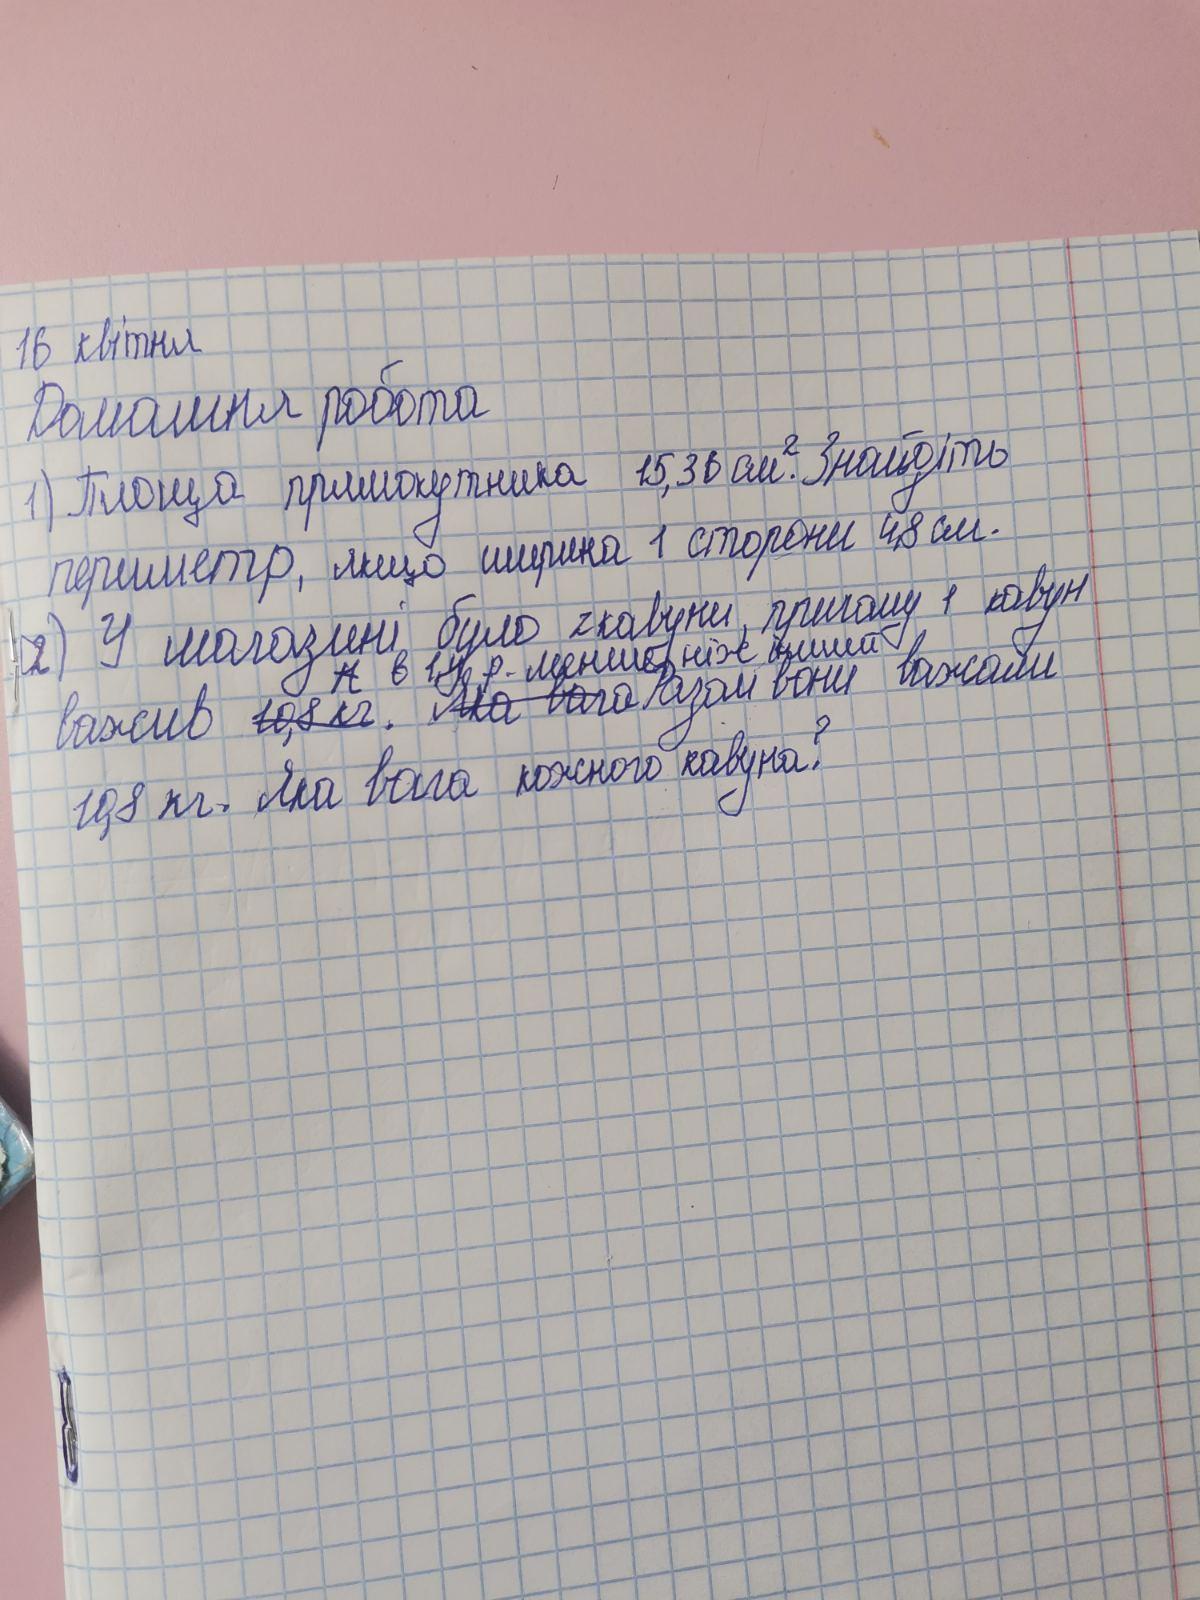 16 квітня
Домашня робота
1) Площа прямокутника 15,36 см². Знайдіть
периметр, якщо ширина 1 сторони 4,8 см.
2) У магазині було 2 кавуни, причому 1 кавун
в р. менше, ніж інший
важив 10,8 кг. Яка вага Разом вони важали
10,8 кг. Яка вага кожного кавуна?